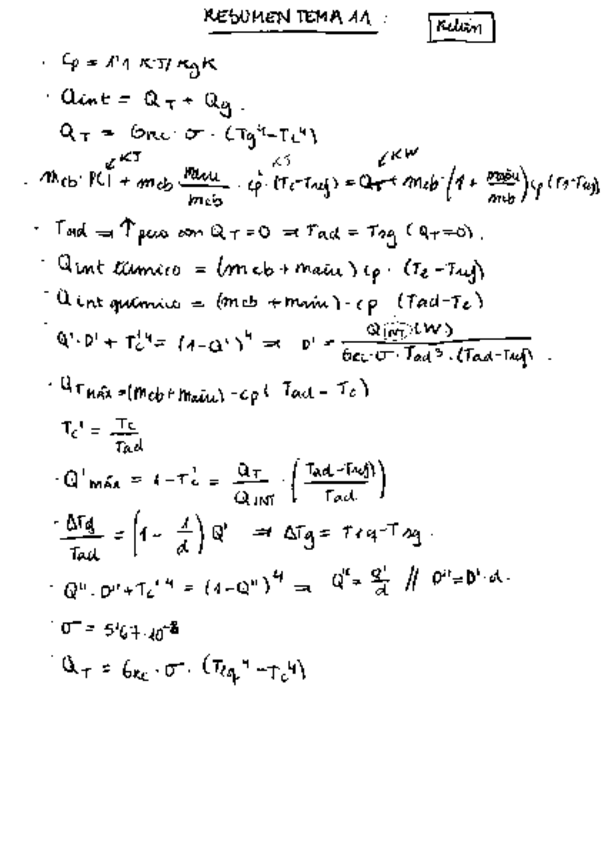 RESUMEN TEMA 11 :
Kelvin
· Cp = 1'1 KJ/KgK
· Qint = QT + Qg.
QT = GRC · σ · (Tg⁴-Tc⁴)
KJ KJ KW
· mcb · PCI + mcb maire/mcb · cp · (Tc-Tref) = QT + mcb · (1 + maire/mcb) cp (Ts-Tref)
· Tad ⇒ ↑ pero con QT = 0 ⇒ Tad = Tsg (QT=0).
· Qint térmico = (mcb + maire) cp · (Te - Tref)
· Qint químico = (mcb + maire) · cp (Tad-Te)
· Q' · D' + Tc'⁴ = (1-Q')⁴ ⇒ D' = QINT (W) / GRC · σ · Tad³ · (Tad-Tref) .
· QTMÁX = (mcb + maire) · cp ( Tad - Tc)
Tc' = Tc/Tad
· Q'máx = 1 - Tc' = QT/QINT · ( (Tad-Tref)/Tad )
· ΔTg/Tad = (1 - 1/d) Q' ⇒ ΔTg = Teq - Tsg .
· Q'' · D'' + Tc'⁴ = (1-Q'')⁴ ⇒ Q'' = Q'/d // D'' = D' · d .
· σ = 5'67·10⁻⁸
· QT = GRC · σ · (Teq⁴ - Tc⁴)